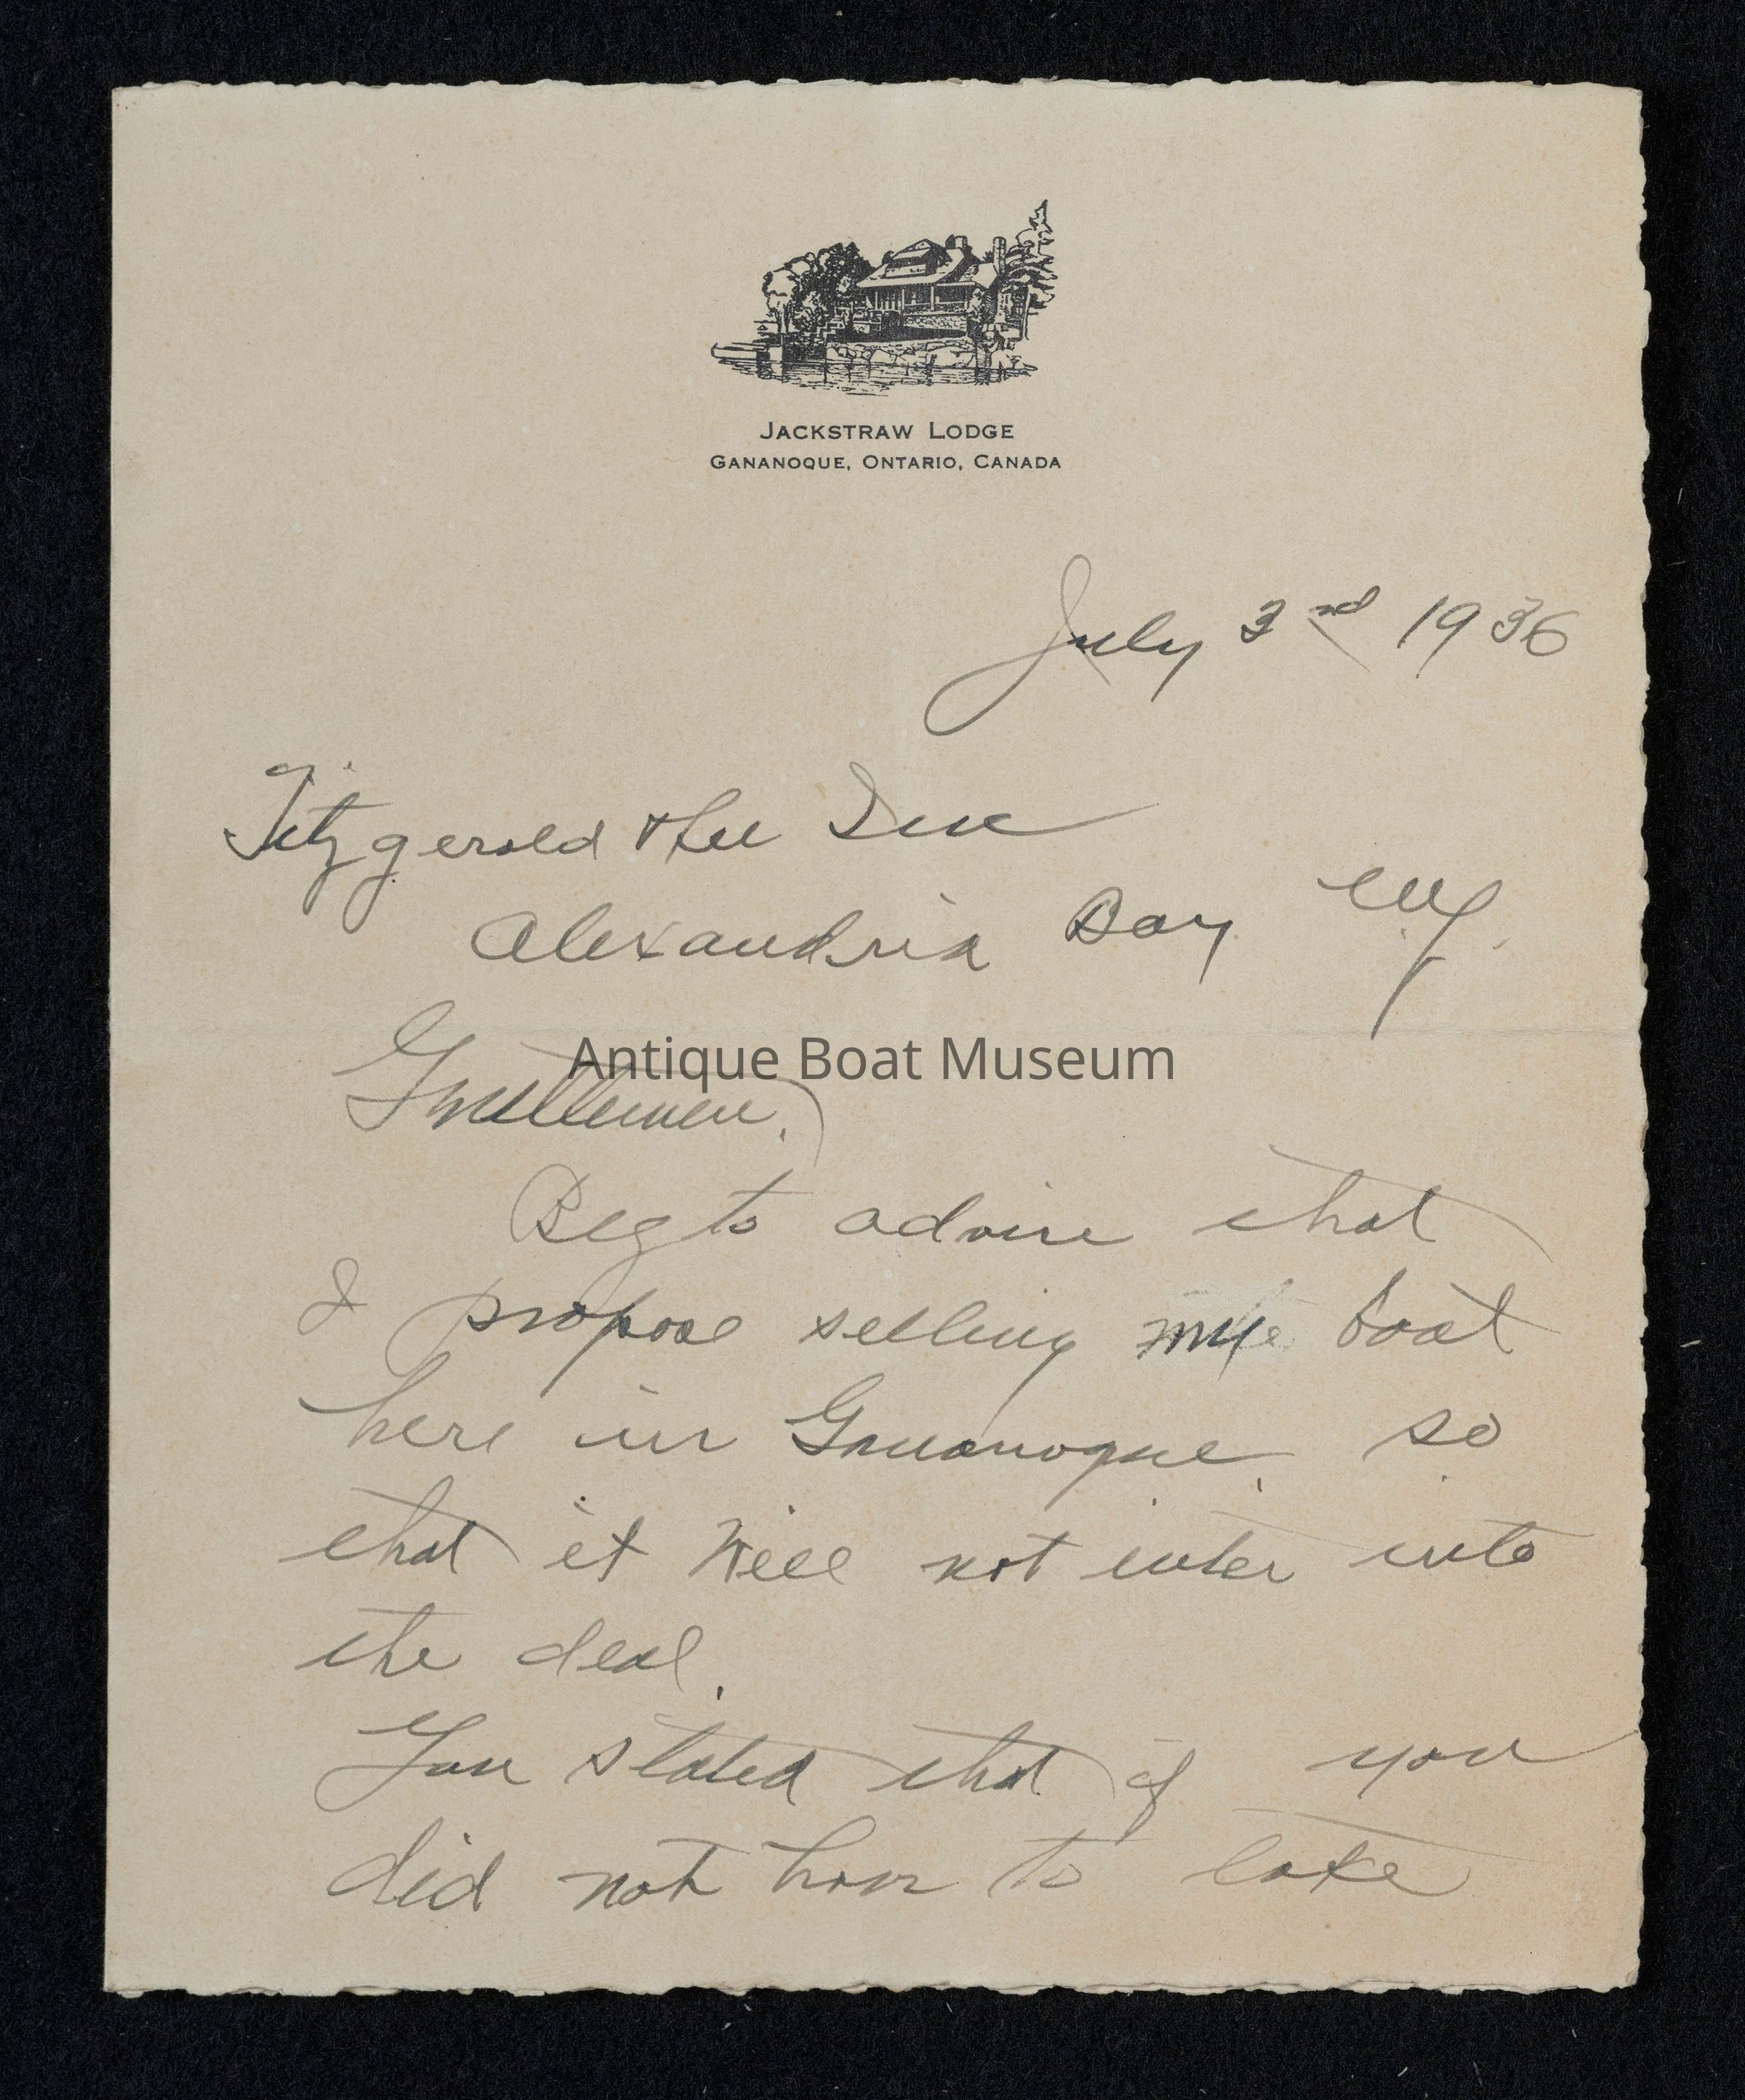 JACKSTRAW LODGE
GANANOQUE, ONTARIO, CANADA
July 3rd 1936
Fitzgerald & Lee Inc
Alexandria Bay NY.
Antique Boat Museum
Gentlemen,
Beg to advise that
I propose selling my boat
here in Gananoque, so
that it will not enter into
the deal.
You stated that if you
did not have to take